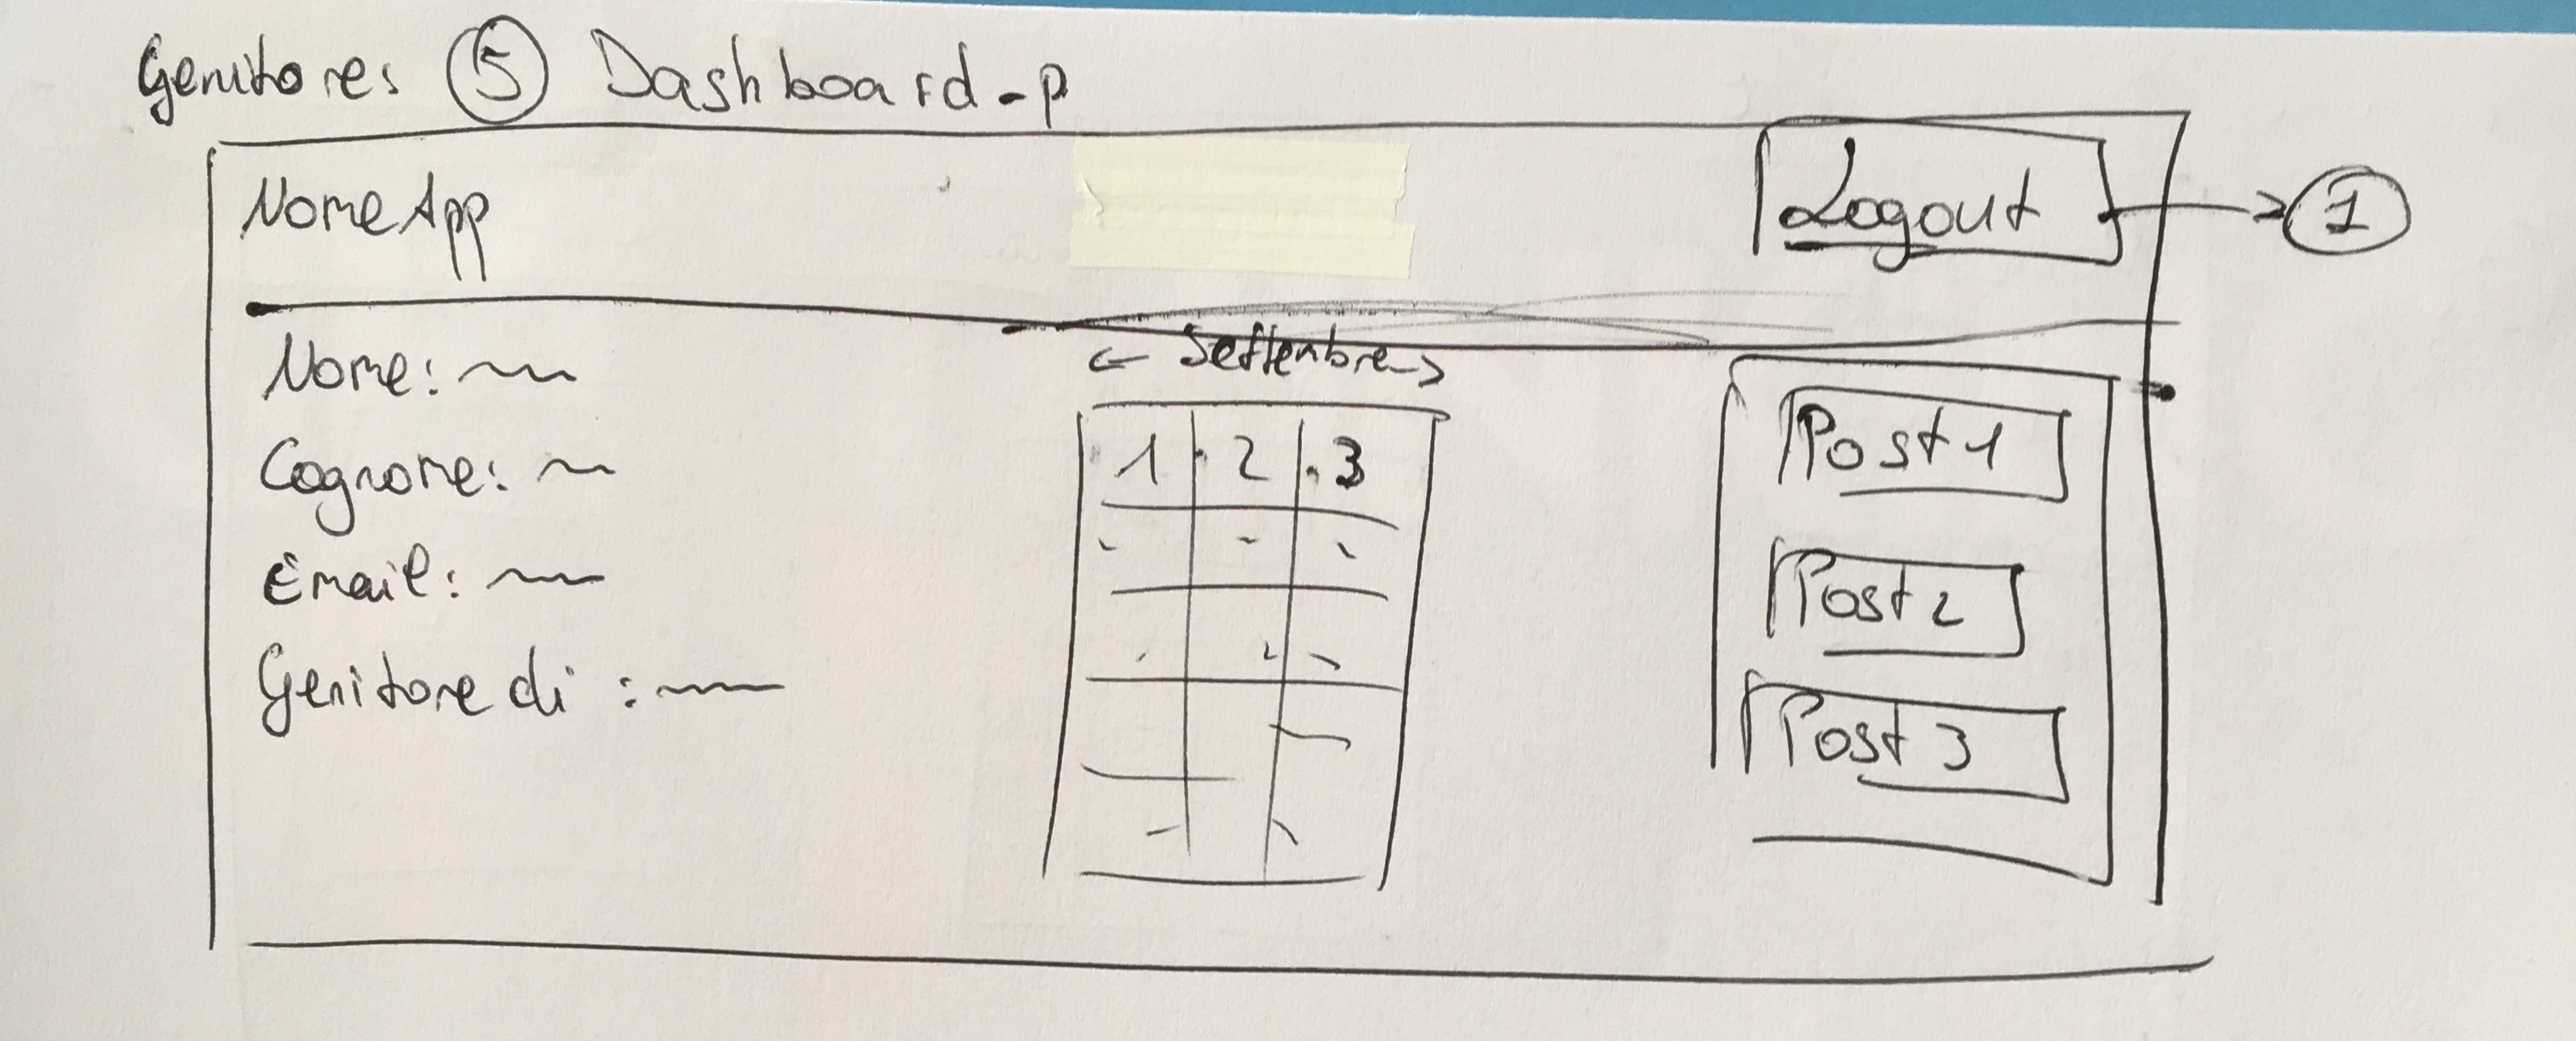 Genitore: 5 Dashboard-p
NomeApp
Logout → 1
Nome:
Cognome:
Email:
Genitore di :
← Settembre →
1 2 3
Post 1
Post 2
Post 3